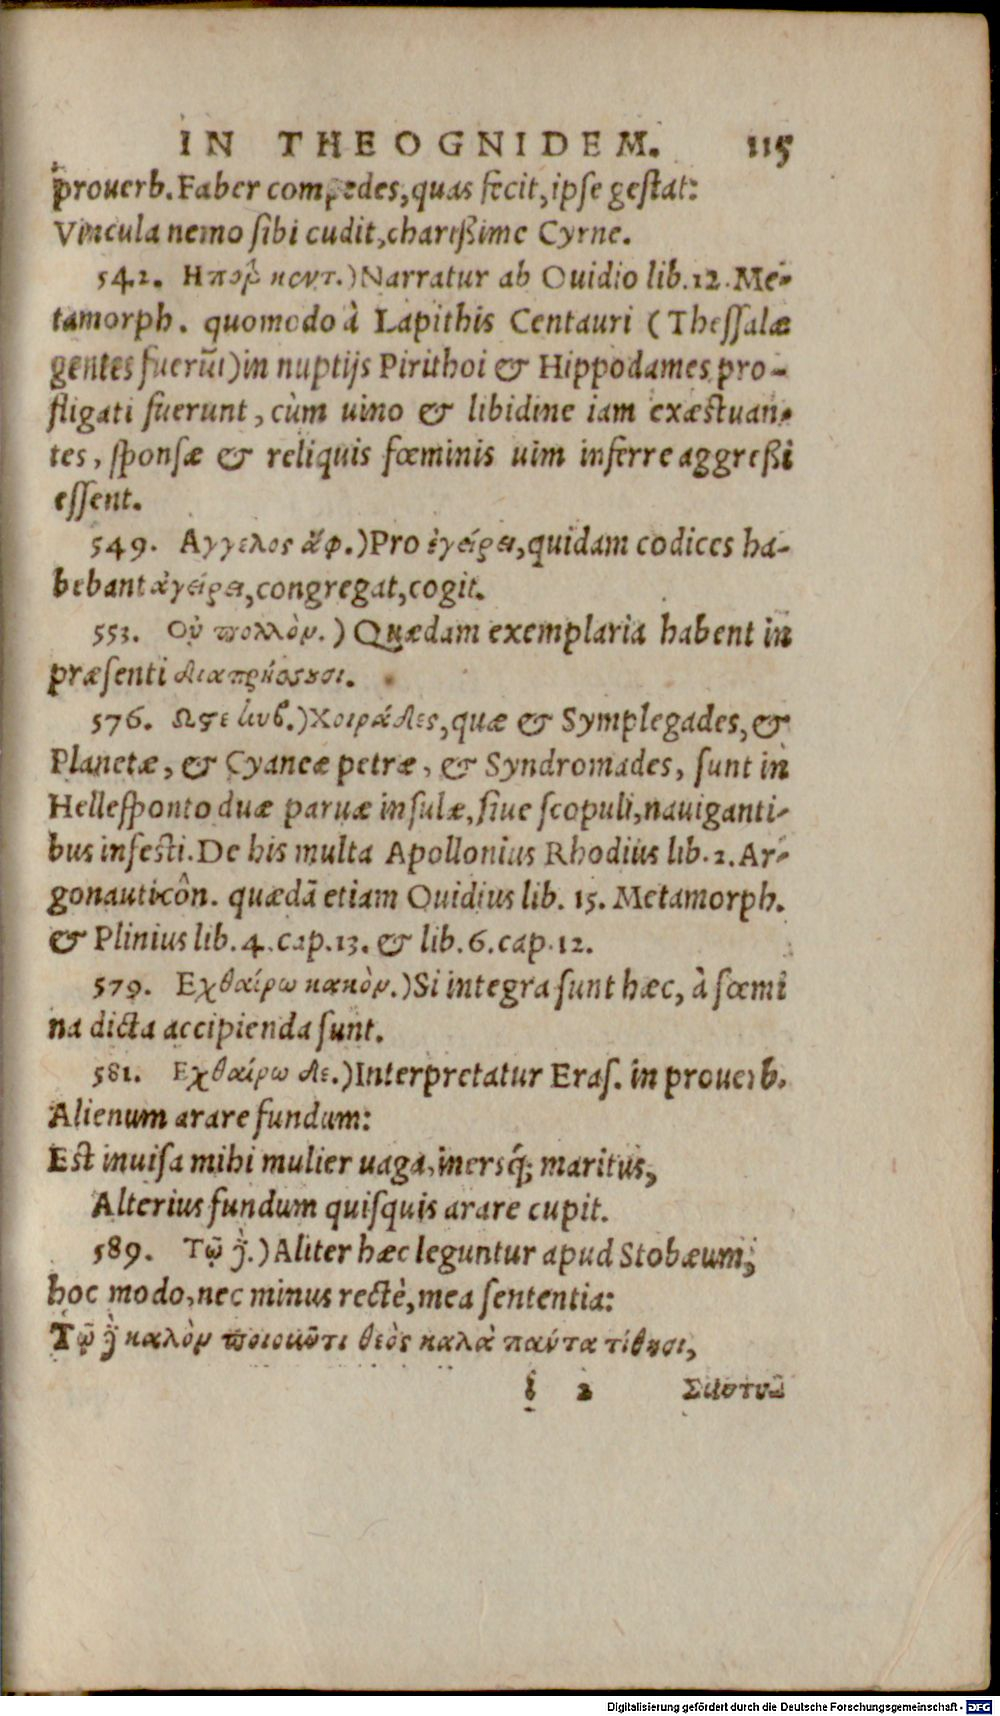 IN THEOGNIDEM. 115
prouerb. Faber compedes, quas fecit, ipse gestat:
Vincula nemo sibi cudit, charißime Cyrne.
542. Ηπϱ̀ κεντ.) Narratur ab Ouidio lib. 12. Me-
tamorph. quomodo à Lapithis Centauri (Thessalæ
gentes fuerũt) in nuptijs Pirithoi & Hippodames pro-
fligati fuerunt, cùm uino & libidine iam exæstuan-
tes, sponsæ & reliquis fœminis uim inferre aggreßi
essent.
549. Αγγελος ἄφ.) Pro ἐγείρει, quidam codices ha-
bebant ἀγείρει, congregat, cogit.
553. Οὐ πολλὸν.) Quædam exemplaria habent in
præsenti διαπρήσσουσι.
576. Ωςε) Χοιράδες, quæ & Symplegades, &
Planetæ, & Cyaneæ petræ, & Syndromades, sunt in
Hellesponto duæ paruæ insulæ, siue scopuli, nauiganti-
bus infesti. De his multa Apollonius Rhodius lib. 2. Ar-
gonauticôn. quædã etiam Ouidius lib. 15. Metamorph.
& Plinius lib. 4. cap. 13. & lib. 6. cap. 12.
579. Εχθαίρω κακὸν.) Si integra sunt hæc, à fœmi
na dicta accipienda sunt.
581. Εχθαίρω δε.) Interpretatur Eras. in prouerb.
Alienum arare fundum:
Est inuisa mihi mulier uaga, inersq́; maritus,
Alterius fundum quisquis arare cupit.
589. Τῷ δὲ.) Aliter hæc leguntur apud Stobæum,
hoc modo, nec minus rectè, mea sententia:
Τῷ δὲ καλὸν ποιοῦντι θεὸς καλὰ πάντα τίθησι,
i 2
Digitalisierung gefördert durch die Deutsche Forschungsgemeinschaft - DFG